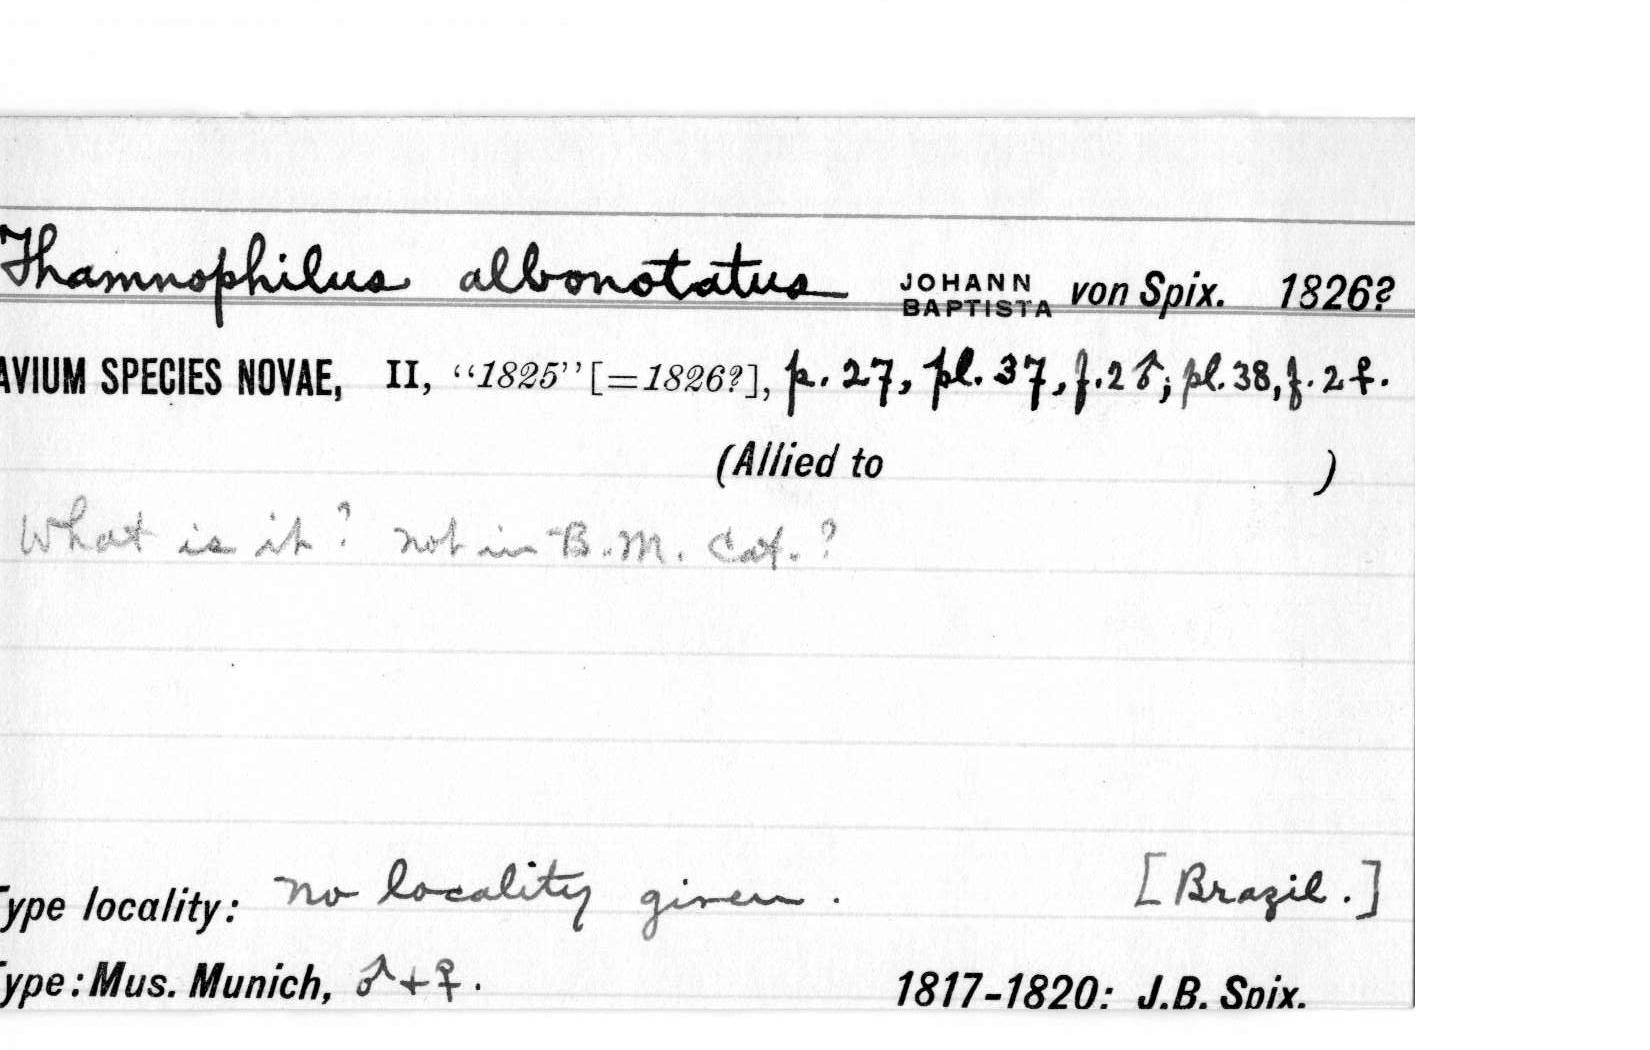 Thamnophilus albonotatus JOHANN BAPTISTA von Spix. 1826?
AVIUM SPECIES NOVAE, II, “1825” [=1826?], p. 27, pl. 37, f. 2 ♂; pl. 38, f. 2 ♀.
(Allied to )
What is it? not in B.M. Cat.?
Type locality: no locality given. [Brazil.]
Type: Mus. Munich, ♂+♀. 1817-1820: J.B. Spix.